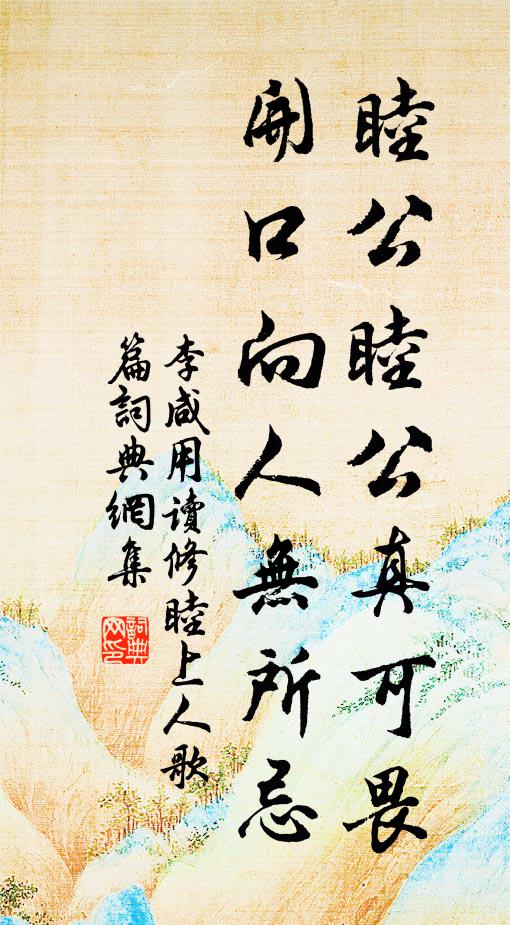 睦公睦公真可畏
開口向人無所忌
李咸用讀修睦上人歌
篇詞典網集
詞典网印